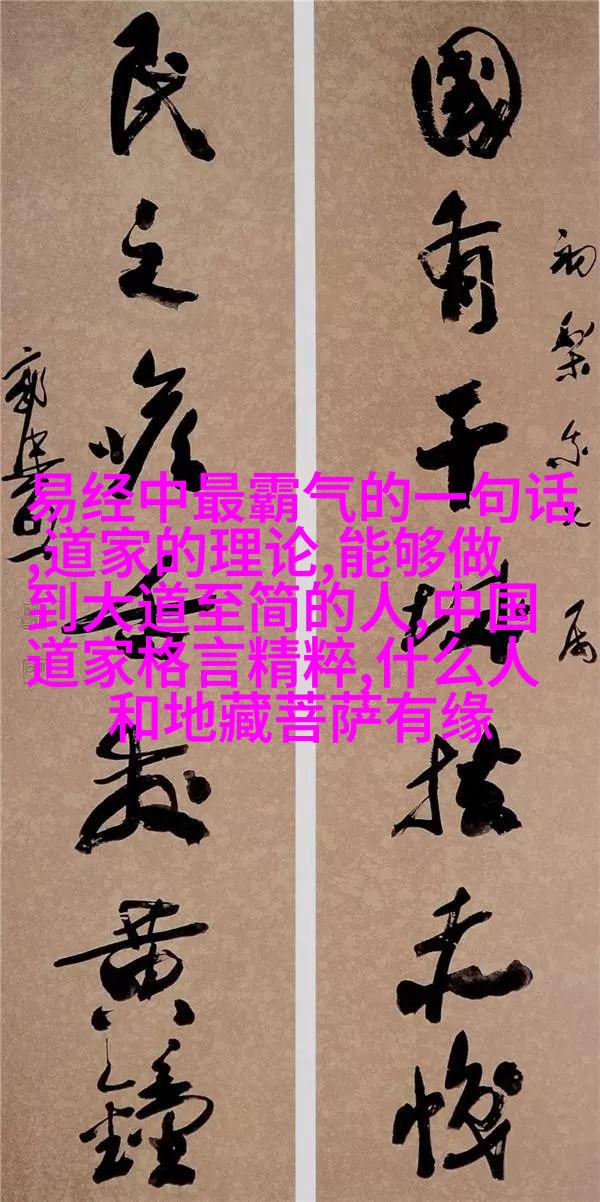 國有干城扶赤幟
民之喉舌黄鐘
易经中最霸气的一句话
,道家的理论,能够做
到大道至简的人,中国
道家格言精粹,什么人
和地藏菩萨有缘